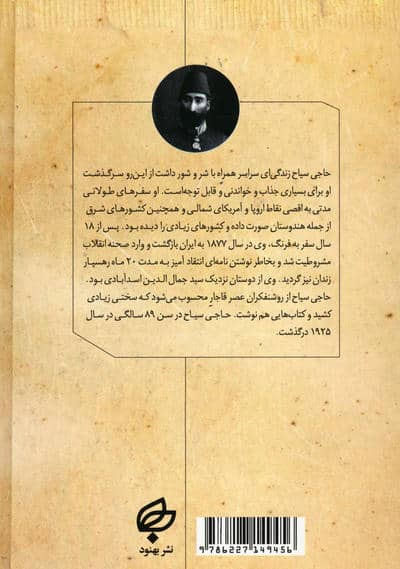 حاجی سیاح زندگی‌ای سراسر همراه با شر و شور داشت از این‌رو سرگذشت
او برای بسیاری جذاب و خواندنی و قابل توجه‌است. او سفرهای طولانی
مدتی به اقصی نقاط اروپا و آمریکای شمالی و همچنین کشورهای شرق
از جمله هندوستان صورت داده و کشورهای زیادی را دیده بود. پس از ۱۸
سال سفر به‌فرنگ، وی در سال ۱۸۷۷ به ایران بازگشت و وارد صحنه انقلاب
مشروطیت شد و بخاطر نوشتن نامه‌ای انتقاد آمیز به مدت ۲۰ ماه رهسپار
زندان نیز گردید. وی از دوستان نزدیک سید جمال الدین اسدآبادی بود.
حاجی سیاح از روشنفکران عصر قاجار محسوب می‌شود که سختی زیادی
کشید و کتاب‌هایی هم نوشت. حاجی سیاح در سن ۸۹ سالگی در سال
۱۹۲۵ درگذشت.
نشر بهنود
9 786227 149456